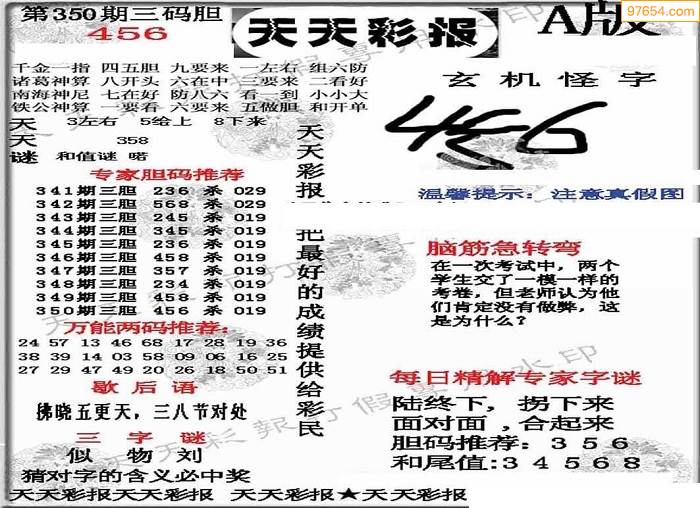 第350期三码胆
456
天天彩报
A版
97654.com
千金一指 四五胆 九要来 一左右 组六防
诸葛神算 八开头 六在中 三要来 二看好
南海神尼 七在好 防八六 看一到 小小大
铁公神算 一要看 六要来 五做胆 和开单
天 3左右 5给上 8下来
天 358
谜 和值谜 喏
专家胆码推荐
341期三胆 236 杀 029
342期三胆 568 杀 029
343期三胆 245 杀 019
344期三胆 345 杀 019
345期三胆 236 杀 019
346期三胆 458 杀 019
347期三胆 357 杀 019
348期三胆 234 杀 019
349期三胆 458 杀 019
350期三胆 456 杀 019
万能两码推荐：
24 57 13 46 68 17 28 19 36
38 39 14 03 58 09 06 16 25
27 29 47 49 20 26 18 50 51
歇后语
拂晓五更天，三八节对处
三字谜
似 物 刘
猜对字的含义必中奖
天天彩报
把最好的成绩提供给彩民
玄机怪字
456
温馨提示：注意真假图
脑筋急转弯
在一次考试中，两个
学生交了一模一样的
考卷，但老师认为他
们肯定没有做弊，这
是为什么？
每日精解专家字谜
陆终下，拐下来
面对面，合起来
胆码推荐：356
和尾值：34568
天天彩报天天彩报 天天彩报★天天彩报